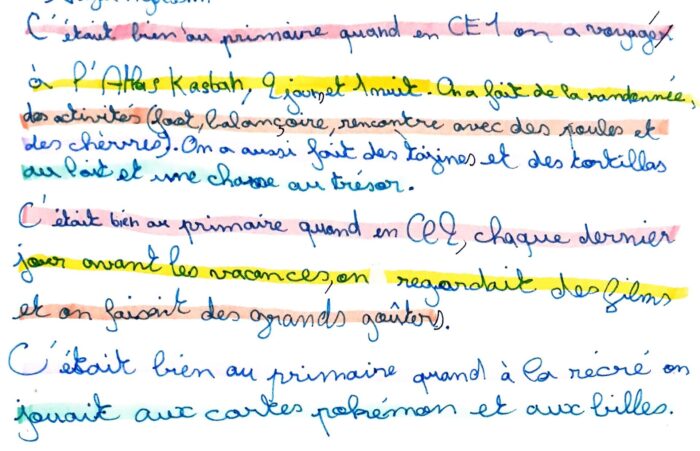 C'était bien au primaire quand en CE1 on a voyagé
à l'Atlas Kasbah, 2 jours et 1 nuit. On a fait de la randonnée,
des activités (foot, balançoire, rencontre avec des poules et
des chèvres). On a aussi fait des tajines et des tortillas
au lait et une chasse au trésor.
C'était bien au primaire quand en CE2, chaque dernier
jour avant les vacances, on regardait des films
et on faisait des grands goûters.
C'était bien au primaire quand à la récré on
jouait aux cartes pokémon et aux billes.